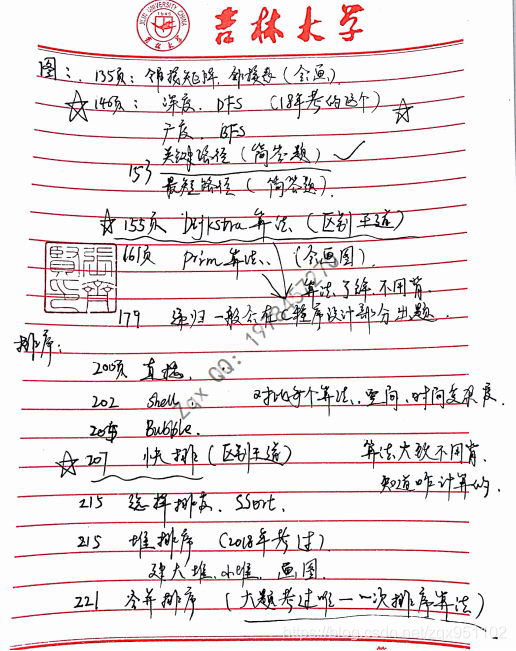 JILIN UNIVERSITY CHINA
1946
吉林大学
图：135页：邻接矩阵、邻接表（会画）
☆146页：深度、DFS （18年考的这个）☆
广度、BFS
153 关键路径（简答题）✓
最短路径（简答题）
☆155页 Dijkstra算法（区别王道）
161页 prim算法、（会画图）
算法了解不用背
179 递归一般会在C程序设计部分出题
排序：
200页 直接、
202 shell 对比每个算法、空间、时间复杂度
205 Bubble、
☆207 快排（区别王道） 算法大致不用背
知道咋计算的、
215 选择排序、SSort、
215 堆排序（2018年考过）
建大堆、小堆、画图
221 归并排序（大题考过唯一一次排序算法）
zqx QQ：
https://blog.csdn.net/zqx951102